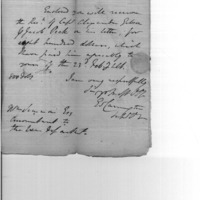 Enclosed you will receive
the Rec.t of Capt Alexander Gibson
& Jacob Peck on one letter, for
eight hundred dollars, which
I have paid him agreeably to
yours of the 23d Feb.y Ult.
800 dolls
I am very respectfully
Sir yr Most
Ed Carrington
Wm Simmons Esq
Accountant to
the War Department